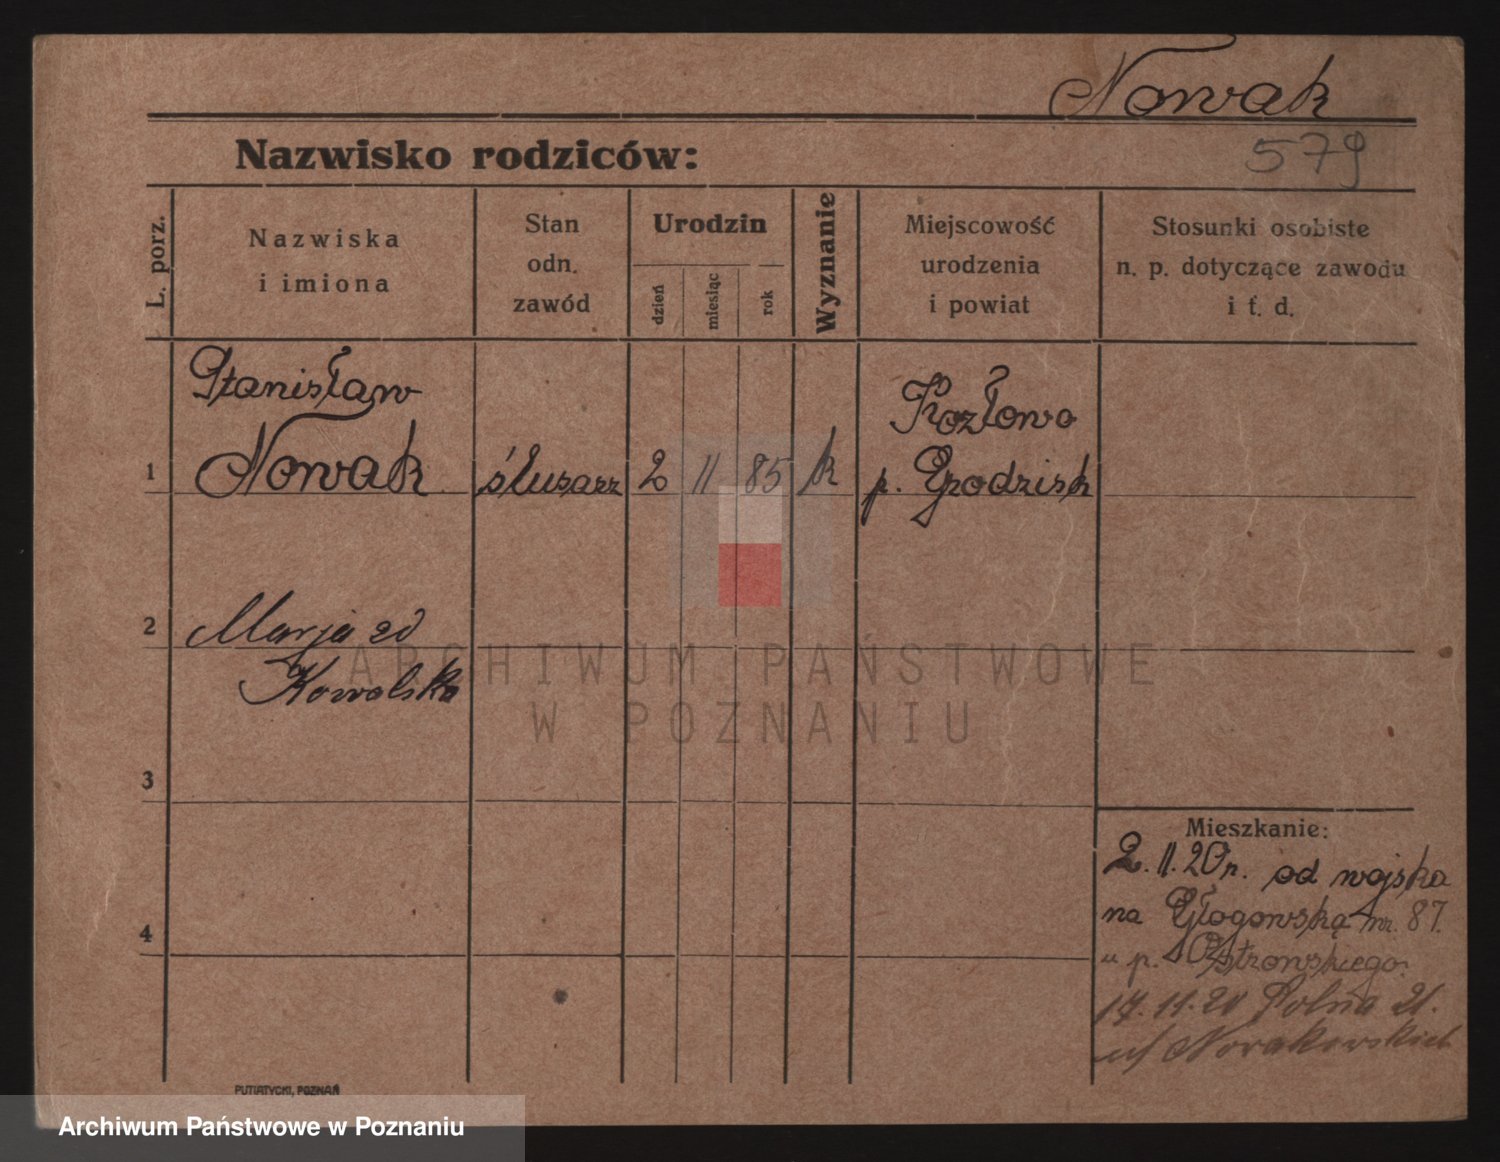 Nowak
579
Nazwisko rodziców:
L. porz.
Nazwiska
i imiona
Stan
odn.
zawód
Urodzin
dzień
miesiąc
rok
Wyznanie
Miejscowość
urodzenia
i powiat
Stosunki osobiste
n. p. dotyczące zawodu
i t. d.
Stanisław
Kozłowo
1 Nowak ślusarz 2 11 85 k p. Grodzisk
2 Marja
Kowalska
ARCHIWUM PAŃSTWOWE
W POZNANIU
3
Mieszkanie:
2.11.20 r. od wojska
na Głogowską nr. 87.
u p. Ostrowskiego.
4
17.11.20 Polna 21.
Nowakowskich
PUTIATYCKI, POZNAŃ
Archiwum Państwowe w Poznaniu